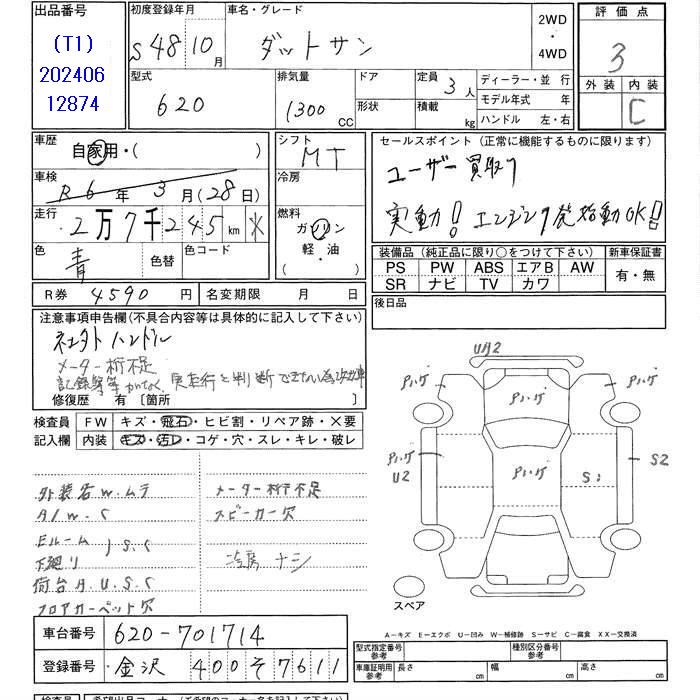 出品番号 初度登録年月 車名・グレード 2WD・4WD 評価点
(T1) 202406 12874
S48 10月 ダットサン 3
型式 排気量 ドア 定員 3人 ディーラー・並行 外装 内装
620 1300 CC 形状 積載 kg モデル年式 年 C
ハンドル 左・右
車歴 自家用・( ) シフト MT
セールスポイント (正常に機能するものに限ります)
車検 R6年 3月(28日) 冷房
ユーザー買取り
走行 2万7千245km ※ 燃料 ガソリン 軽・油
実動! エンジン発始動OK!
色 青 色替 色コード
装備品 (純正品に限り○をつけて下さい) 新車保証書
PS PW ABS エアB AW 有・無
SR ナビ TV カワ
R券 4590円 名変期限 月 日
後日品
注意事項申告欄(不具合内容等は具体的に記入して下さい)
ハンドル
メーター桁不足
修復歴 有 〔箇所 〕
検査員 記入欄
FW キズ・飛石・ヒビ割・リペア跡・×要
内装 キズ・汚レ・コゲ・穴・スレ・キレ・破レ
外装右W.ムラ メーター桁不足
A/W.S スピーカー欠
Eルーム
下廻り S.C 冷房ナシ
荷台A.U.S.C
フロアカーペット欠
UA2
Pハゲ Pハゲ Pハゲ
Pハゲ U2 Pハゲ S1 S2
スペア
A-キズ E-エクボ U-凹み W-補修跡 S-サビ C-腐食 XX-交換済
車台番号 620-701714
登録番号 金沢 400 そ 7611
型式指定番号 参考 種別区分番号 参考
車庫証明用 参考 長さ cm 幅 cm 高さ cm